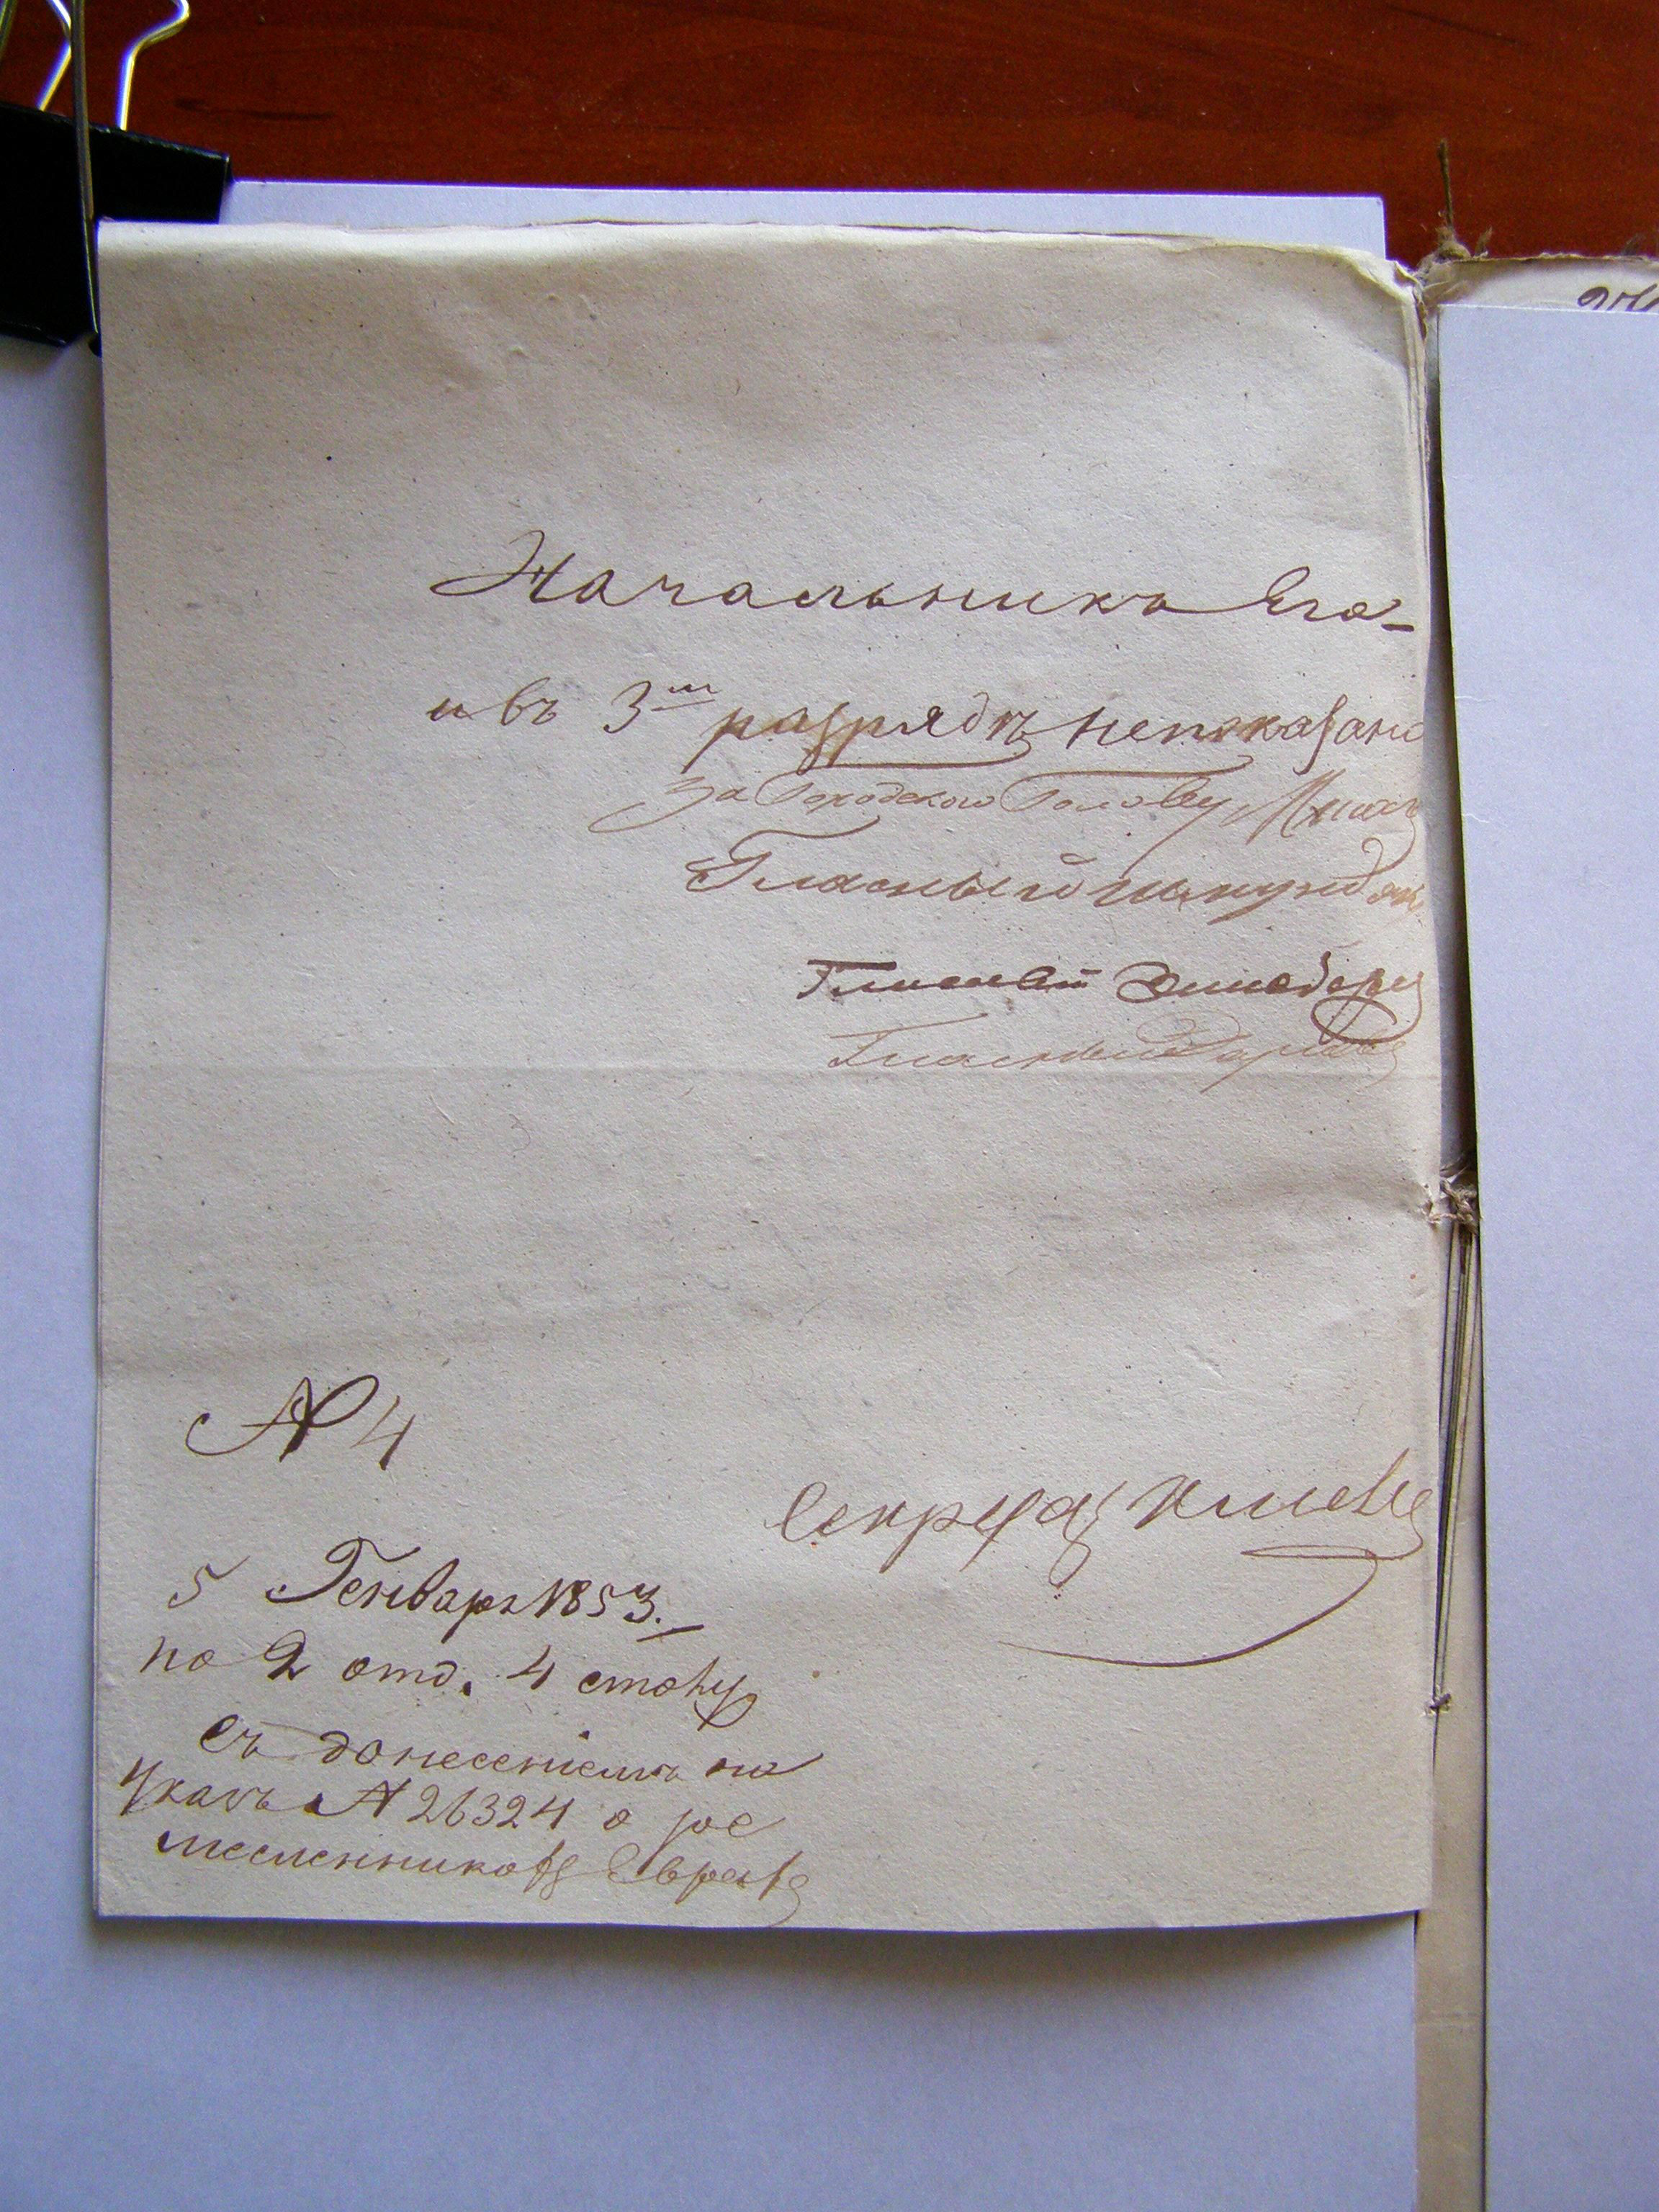 Начальникъ Его-
и въ 3мъ разрядѣ непоказано
За Городскаго Голову
Гласный
Гласный
Гласный
№ 4
Секретарь
5 Генваря 1853.
по 2 отд. 4 столу
съ донесеніемъ на
указъ № 26324 о ре
месленниковъ Евреевъ